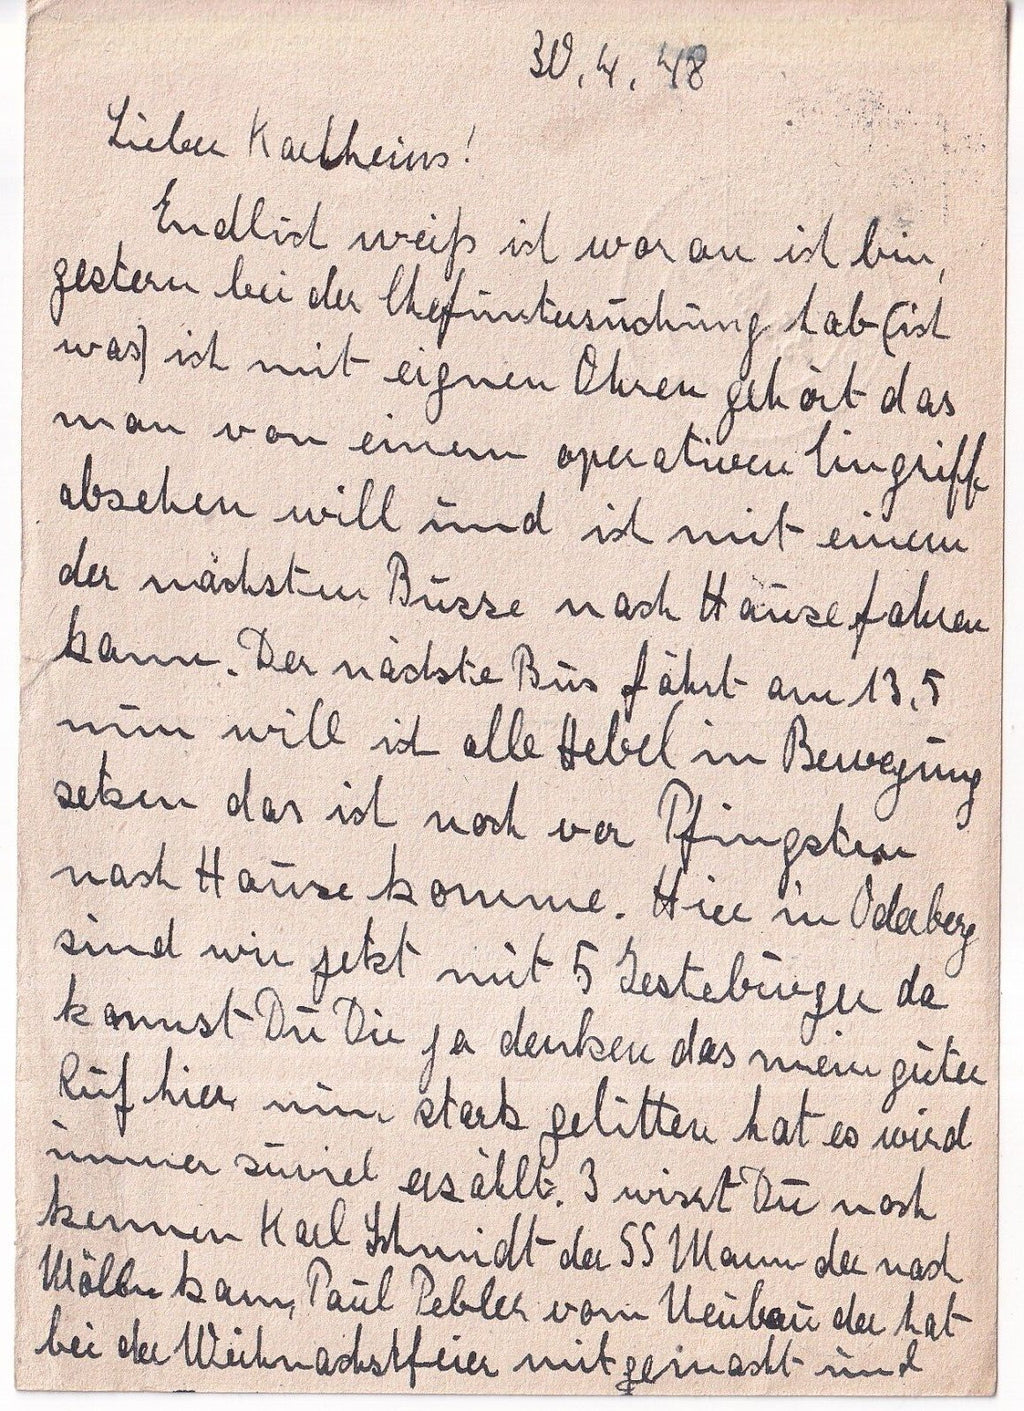 30.4.48
Lieber Karlheinz!
Endlich weiß ich woran ich bin,
gestern bei der Chefuntersuchung hab (ich
was) ich mit eignen Ohren gehört das
man von einem operativen Eingriff
absehen will und ich mit einem
der nächsten Busse nach Hause fahren
kann. Der nächste Bus fährt am 13.5
nun will ich alle Hebel in Bewegung
setzen das ich noch vor Pfingsten
nach Hause komme. Hier in Oderberg
sind wir jetzt mit 5 Gesteburger da
kannst Du Dir ja denken das mein guter
Ruf hier nun stark gelitten hat es wird
immer zuviel erzählt. 3 wirst Du noch
kennen Karl Schmidt der SS Mann der nach
Mölln kam, Paul Pebler vom Neubau der hat
bei der Weihnachtsfeier mitgemacht und